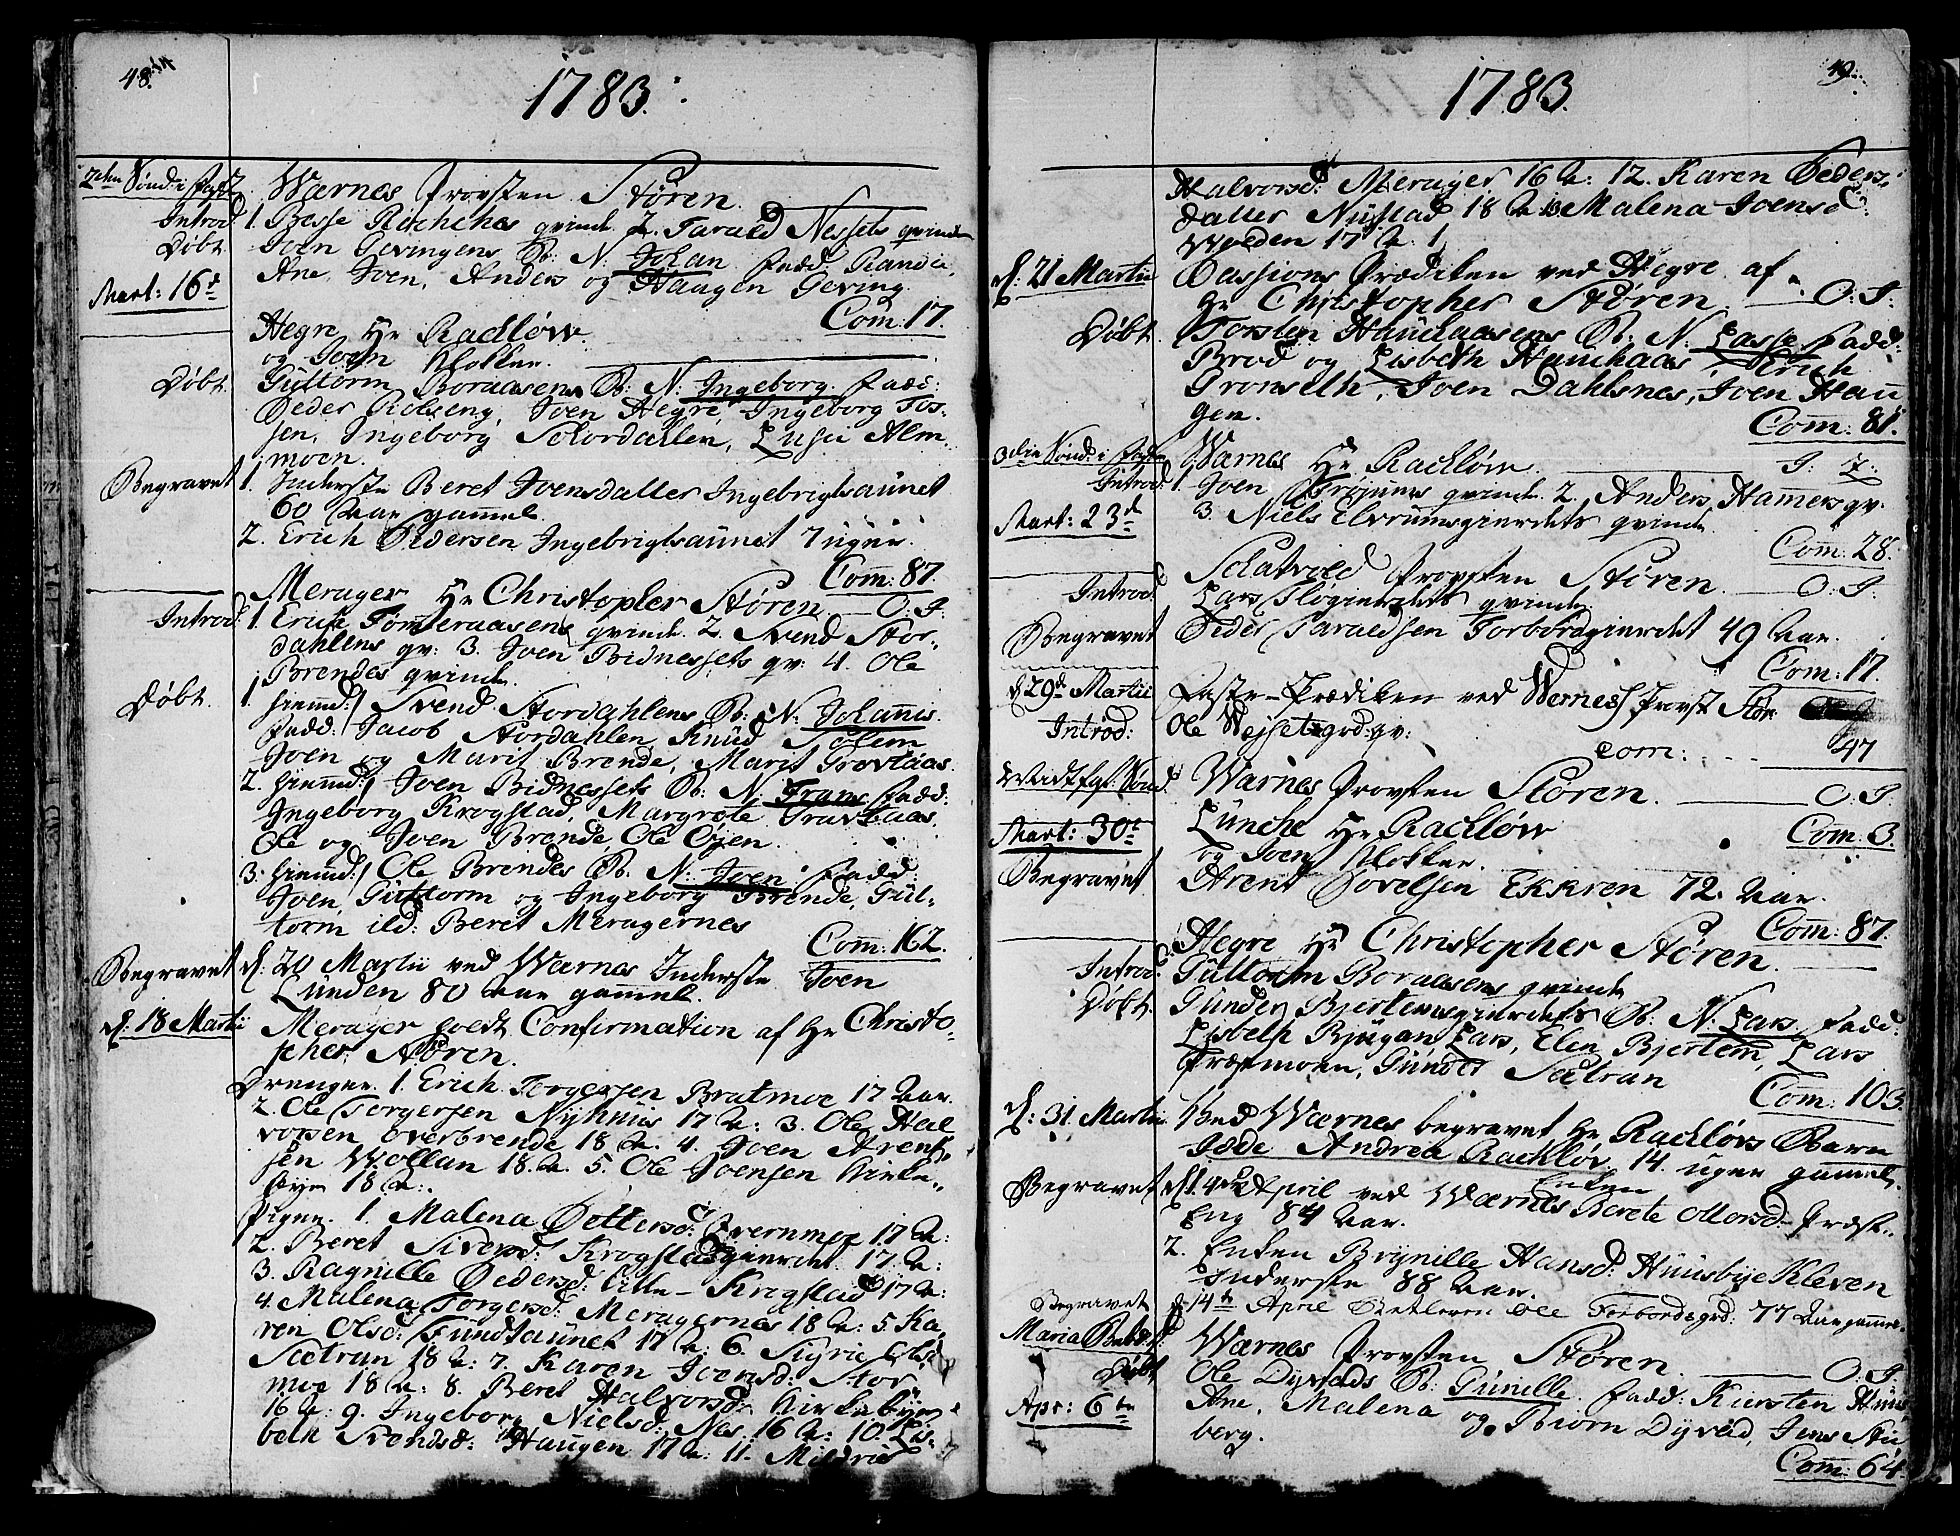 48.
1783.
2den Sønd: i Fast
Wærnes Provsten Støren.
Introd
1. Besse Rechches qvinde. 2. Tarald Nessets qvinde
Døbt
Joen Gevingens B: N: Johan Fadd: Randie,
Ane, Joen, Anders og Haagen Geving
Mart: 16t
Com: 17.
Hegre Hr Rachløw.
og Joen Klokker.
Døbt
Guttorm Boraasens B: N: Ingeborg. Fadd:
Peder Rolseng, Joen Hegre, Ingeborg Fos-
sen, Ingeborg Schordallen, Lusie Alm-
moen.
Begravet
1. Inderste Beret Joensdatter Ingebrigtsaunet
60 Aar gammel.
2. Erich Pedersen Ingebrigtsaunet 7 uger.
Com: 87.
Merager Hr Christopher Støren — O: I.
Introd:
1. Erich Tømmeraasens qvinde 2. Svend Stor-
dahlens qv: 3. Joen Bidnessets qv: 4. Ole
Brendes qvinde.
Døbt.
1. hiemd:/ Svend Stordahlens B: N: Johannes.
Fadd: Jacob Stordahlen Knud Solem
Joen og Marit Brende, Marit Grovlaas.
2. hiemd:/ Joen Bidnessets B: N: Frans Fadd:
Ingeborg Krogstad, Margrete Gravlaas,
Ole og Joen Brende, Ole Øyen.
3. hiemd:/ Ole Brendes B: N: Joen. Fadd:
Joen, Guttorm og Ingeborg Brende, Gut-
torm ibd: Beret Meragernes
Com: 162.
Begravet
d: 20 Martii ved Wærnes Inderste Joen
Lunden 80 Aar gammel.
d: 18 Martii
Merager holdt Confirmation af Hr Christo-
pher Støren.
Drenger. 1. Erich Torgersen Bratmoe 17 Aar.
2. Ole Torgersen Nyhuus 17 A: 3. Ole Hal
vorsen Overbrende 18 A: 4. Joen Arent-
sen Wollan 18. A. 5. Ole Joensen Kirke-
bye 18 A:
Piger. 1. Malena Pettersd: Fvernmoe 17 A:
2. Beret Siversd: Krogstadgierdet 17 A:
3. Ragnille Pedersd: Litle-Krogstad 17 A:
4. Malena Torgersd: Meragernes 18 A: 5 Ka-
ren Olsd: Fundtaunet 17 A: 6. Sigrie Olsd
Sætran 18 A: 7. Karen Joensd: Stor
moe 18 A: 8. Beret Halvorsd: Kirkebye
16 A: 9. Ingeborg Nielsd: Nes 16 A: 10. Lis-
beth Svendsd: Haugen 17 A: 11. Mildrid
49.
1783.
Halvorsd: Merager 16 A: 12. Karen Peders-
datter Nustad 18 A 13 Malena Joensd:
Wolden 17 A.
d: 21 Martii
Passions Prædiken ved Hegre af
Hr Christopher Støren — O: I.
Døbt
Torsten Hamelaasens B: N: Lasse Fadd:
Brod og Lisbeth Erich
Grønseth, Joen Dahlsnes, Joen Hau
gen.
Com: 81.
3die Sønd: i Fasten
Wærnes Hr Rachløw. — I: 7.
Introd:
1. Joen Trøjuus qvinde 2. Anders Hammers qv.
3. Niels Elvrumsgierdets qvinde
Mart: 23d
Com: 28.
Schatvold Provsten Støren — O: I.
Introd.
Lars Fløgierdets qvinde
Begravet
Peder Taraldsen Forbordgierdet 49 Aar.
Com: 17.
d 29d Martii
Faste-Prædiken ved Wernes Provst Stør.
Introd:
Ole Wejset grd: qv:
com: 47
Midtfast Sønd
Wærnes Provsten Støren. — O: I.
Mart: 30t
Lunche Hr Rachløw
Com: 3.
og Joen Klokker.
Begravet
Arent Tovelsen Ekkren 72. Aar.
Com: 87.
Hegre Hr Christopher Støren.
Introd:
Guttorm Boraasens qvinde
Døbt.
Gunder Bjertemsgierdets B: N: Lars, Fadd:
Lisbeth Bjugan, Lars, Elen Bjertem, Lars
Præstmoen, Gunder Sætran
Com: 103.
d: 31 Martii
Ved Wærnes begravet Hr Rachløvs Barn
Jæde Andrea Rachløv. 14 uger gammel.
Begravet
d 1. April ved Wærnes Enken Berete Olorsd: Præst-
Eng 84 Aar.
2. Enken Brynille Hansd: Huusbye Kleven
Inderste 88 Aar.
Begravet
d 14te April Betleren Ole Forbordsgrd: 77 Aar gammel.
Maria Bebud:
Wærnes Provsten Støren. — O: I.
Døbt
Ole Dyvads B: Gunille. Fadd: Kiersten Huus
Apr: 6te
Ane, Malena og Biørn Dyvad, Jens Stu
berg.
Com: 64.